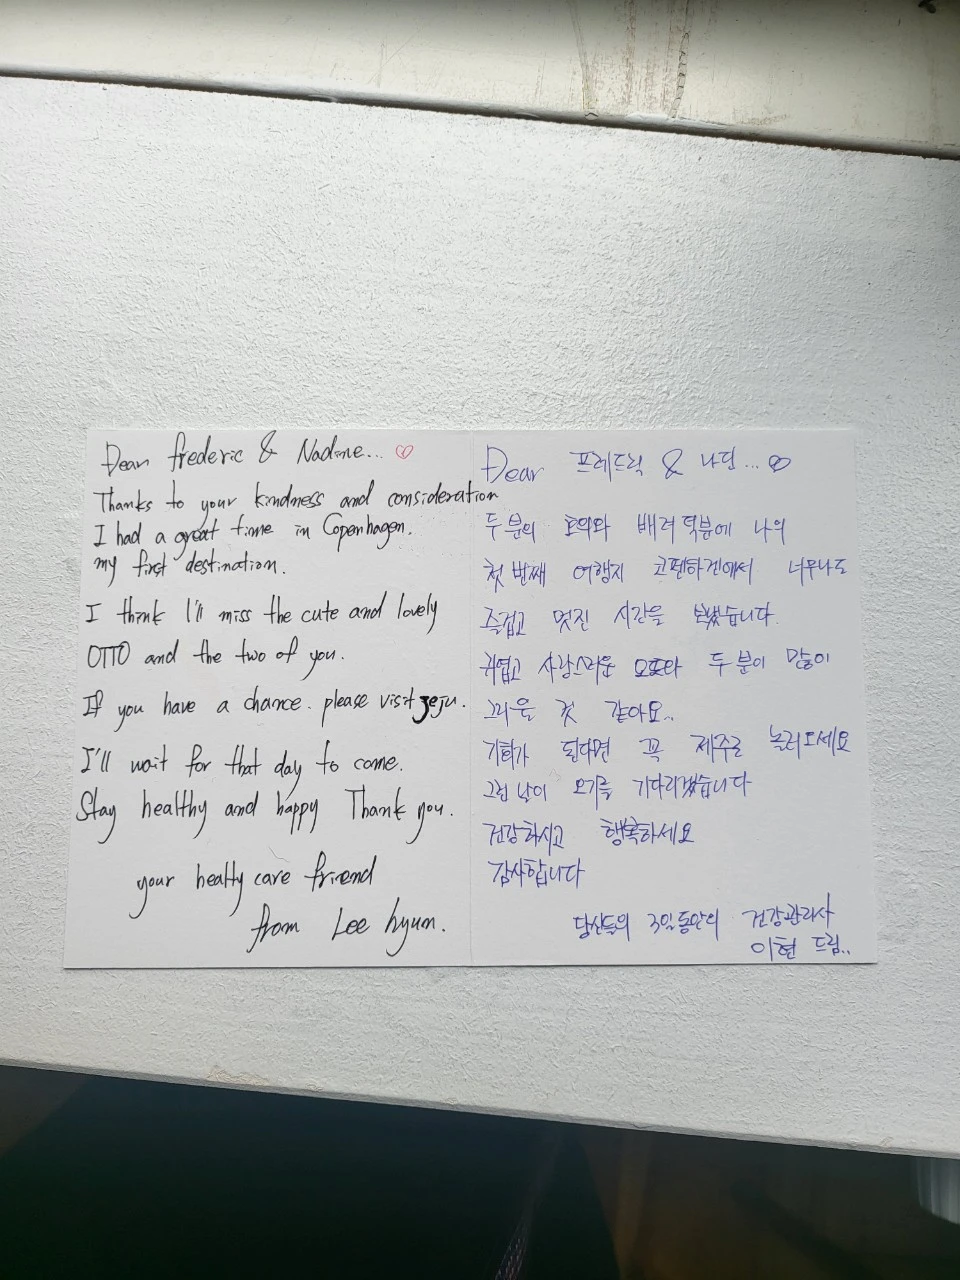 Dear frederic & Nadine... ♡
Thanks to your kindness and consideration
I had a great time in Copenhagen.
my first destination.
I think I'll miss the cute and lovely
OTTO and the two of you.
If you have a chance. please visit jeju.
I'll wait for that day to come.
Stay healthy and happy Thank you.
your healty care friend
from Lee hyun.
Dear 프레드릭 & 나딘... ♡
두분의 호의와 배려 덕분에 나의
첫 번째 여행지 코펜하겐에서 너무나도
즐겁고 멋진 시간을 보냈습니다.
귀엽고 사랑스러운 오또와 두 분이 많이
그리울 것 같아요..
기회가 된다면 꼭 제주로 놀러오세요
그런 날이 오기를 기다리겠습니다
건강하시고 행복하세요
감사합니다
당신들의 3일동안의 건강관리사
이현 드림..